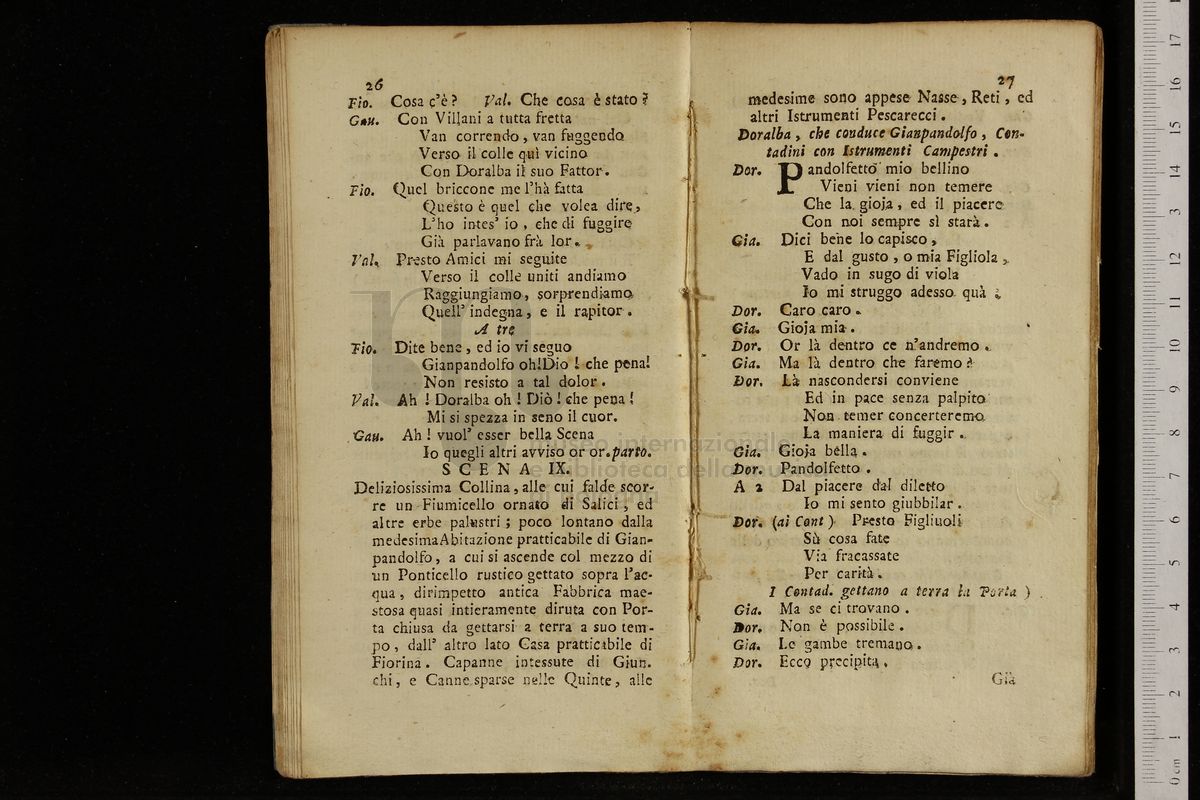 26
Fio. Cosa c'è? Val. Che cosa è stato?
Gau. Con Villani a tutta fretta
Van correndo, van fuggendo
Verso il colle quì vicino
Con Doralba il suo Fattor.
Fio. Quel briccone me l'hà fatta
Questo è quel che volea dire,
L'ho intes' io, che di fuggire
Già parlavano frà lor.
Val. Presto Amici mi seguite
Verso il colle uniti andiamo
Raggiungiamo, sorprendiamo
Quell' indegna, e il rapitor.
A tre
Fio. Dite bene, ed io vi seguo
Gianpandolfo oh! Dio! che pena!
Non resisto a tal dolor.
Val. Ah! Doralba oh! Diò! che pena!
Mi si spezza in seno il cuor.
Gau. Ah! vuol' esser bella Scena
Io quegli altri avviso or or. parto.
SCENA IX.
Deliziosissima Collina, alle cui falde scor-
re un Fiumicello ornato di Salici, ed
altre erbe palustri; poco lontano dalla
medesima Abitazione pratticabile di Gian-
pandolfo, a cui si ascende col mezzo di
un Ponticello rustico gettato sopra l'ac-
qua, dirimpetto antica Fabbrica mae-
stosa quasi intieramente diruta con Por-
ta chiusa da gettarsi a terra a suo tem-
po, dall' altro lato Casa pratticabile di
Fiorina. Capanne intessute di Giun-
chi, e Canne sparse nelle Quinte, alle
27
medesime sono appese Nasse, Reti, ed
altri Istrumenti Pescarecci.
Doralba, che conduce Gianpandolfo, Con-
tadini con Istrumenti Campestri.
Dor. Pandolfetto mio bellino
Vieni vieni non temere
Che la gioja, ed il piacere
Con noi sempre sì starà.
Gia. Dici bene lo capisco,
E dal gusto, o mia Figliola,
Vado in sugo di viola
Io mi struggo adesso quà.
Dor. Caro caro.
Gia. Gioja mia.
Dor. Or là dentro ce n'andremo.
Gia. Ma là dentro che faremo?
Dor. Là nascondersi conviene
Ed in pace senza palpito
Non temer concerteremo
La maniera di fuggir.
Gia. Gioja bella.
Dor. Pandolfetto.
A 2 Dal piacere dal diletto
Io mi sento giubbilar.
Dor. (ai Cont) Presto Figliuoli
Sù cosa fate
Via fracassate
Per carità.
I Contad. gettano a terra la Porta)
Gia. Ma se ci trovano.
Dor. Non è possibile.
Gia. Le gambe tremano.
Dor. Ecco precipita.
Già